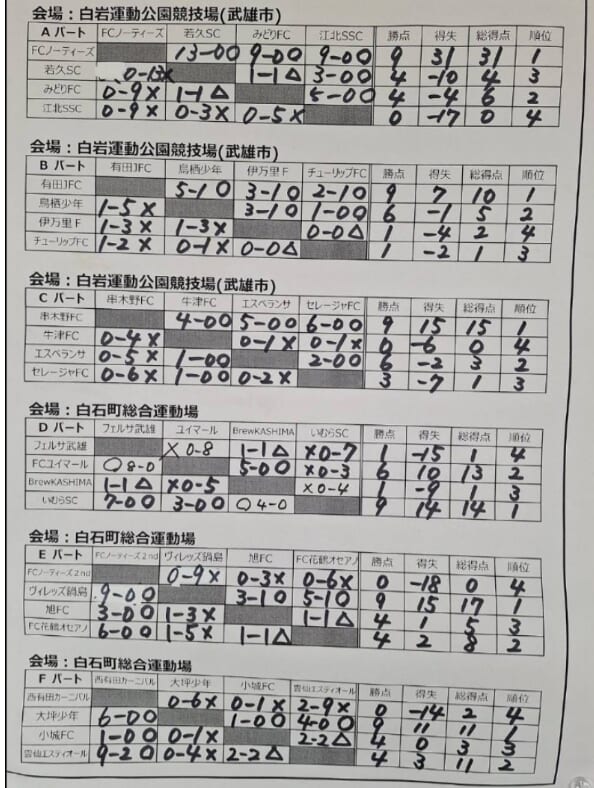 会場：白岩運動公園競技場(武雄市)
A パート FCノーティーズ 若久SC みどりFC 江北SSC 勝点 得失 総得点 順位
FCノーティーズ 13-0○ 9-0○ 9-0○ 9 31 31 1
若久SC 0-13× 1-1△ 3-0○ 4 -10 4 3
みどりFC 0-9× 1-1△ 5-0○ 4 -4 6 2
江北SSC 0-9× 0-3× 0-5× 0 -17 0 4
会場：白岩運動公園競技場(武雄市)
B パート 有田JFC 鳥栖少年 伊万里F チューリップFC 勝点 得失 総得点 順位
有田JFC 5-1○ 3-1○ 2-1○ 9 7 10 1
鳥栖少年 1-5× 3-1○ 1-0○ 6 -1 5 2
伊万里F 1-3× 1-3× 0-0△ 1 -4 2 4
チューリップFC 1-2× 0-1× 0-0△ 1 -2 1 3
会場：白岩運動公園競技場(武雄市)
C パート 串木野FC 牛津FC エスペランサ セレージャFC 勝点 得失 総得点 順位
串木野FC 4-0○ 5-0○ 6-0○ 9 15 15 1
牛津FC 0-4× 0-1× 0-1× 0 -6 0 4
エスペランサ 0-5× 1-0○ 2-0○ 6 -2 3 2
セレージャFC 0-6× 1-0○ 0-2× 3 -7 1 3
会場：白石町総合運動場
D パート フェルサ武雄 ユイマール BrewKASHIMA いむらSC 勝点 得失 総得点 順位
フェルサ武雄 ×0-8 1-1△ ×0-7 1 -15 1 4
FCユイマール ○8-0 5-0○ ×0-3 6 10 13 2
BrewKASHIMA 1-1△ ×0-5 ×0-4 1 -9 1 3
いむらSC 7-0○ 3-0○ ○4-0 9 14 14 1
会場：白石町総合運動場
E パート FCノーティーズ2nd ヴィレッズ鍋島 旭FC FC花鶴オセアノ 勝点 得失 総得点 順位
FCノーティーズ2nd 0-9× 0-3× 0-6× 0 -18 0 4
ヴィレッズ鍋島 9-0○ 3-1○ 5-1○ 9 15 17 1
旭FC 3-0○ 1-3× 1-1△ 4 1 5 3
FC花鶴オセアノ 6-0○ 1-5× 1-1△ 4 2 8 2
会場：白石町総合運動場
F パート 西有田カーニバル 大坪少年 小城FC 雲仙エスティオール 勝点 得失 総得点 順位
西有田カーニバル 0-6× 0-1× 2-9× 0 -14 2 4
大坪少年 6-0○ 1-0○ 4-0○ 9 11 11 1
小城FC 1-0○ 0-1× 2-2△ 4 0 3 3
雲仙エスティオール 9-2○ 0-4× 2-2△ 4 3 11 2